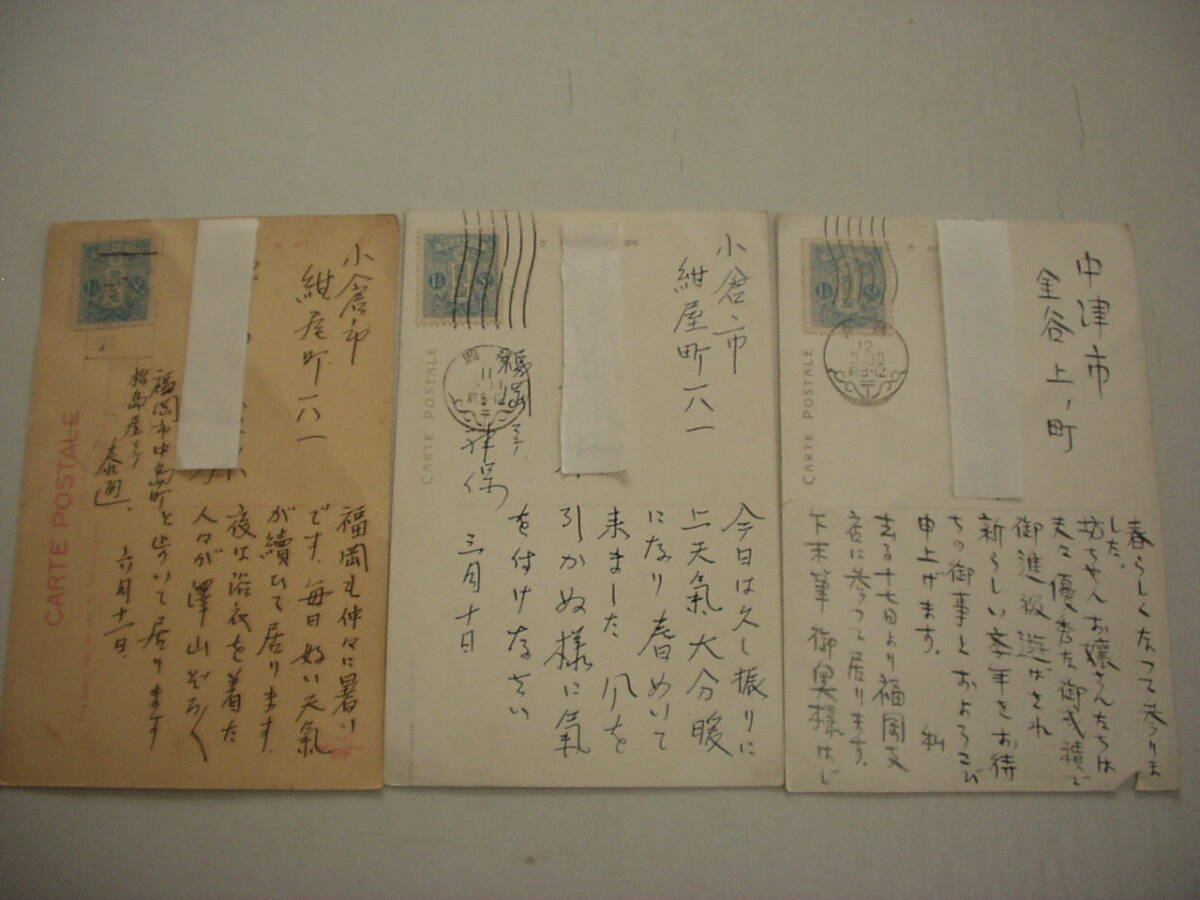 中津市
金谷上ノ町
CARTE POSTALE
12
3.30
春らしくなつて参りま
した。
坊ちやんお嬢さんたちは
夫々優秀な御成績で
御進級遊ばされ
新らしい学年をお待
ちの御事とおよろこび
申上げます。 私
去る十七日より福岡支
店に参つて居ります。
下末筆御奥様はじ
小倉市
紺屋町一八一
福岡ニテ
神保
CARTE POSTALE
今日は久し振りに
上天氣大分暖
になり春めいて
来ました 風を
引かぬ様に氣
を付けなさい
三月十日
小倉市
紺屋町一八一
福岡市中島町
松島屋ニテ
CARTE POSTALE
福岡も仲々に暑い
です、毎日好い天氣
が續いて居ります
夜は浴衣を着た
人々が澤山ぞろ〱
と歩いて居ります
六月十一日